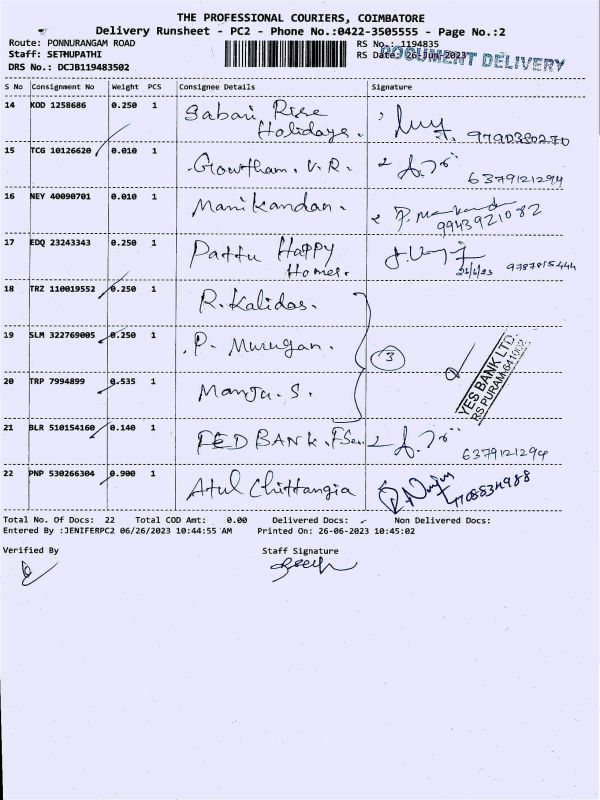 THE PROFESSIONAL COURIERS, COIMBATORE
Delivery Runsheet - PC2 - Phone No.:0422-3505555 - Page No.:2
Route: PONNURANGAM ROAD RS No.: 1194835
Staff: SETHUPATHI RS Date: 26-Jun-2023
DOCUMENT DELIVERY
DRS No.: DCJB119483502
S No Consignment No Weight PCS Consignee Details Signature
14 KOD 1258686 0.250 1 Sabari Rise
Holidays. 9790380270
15 TCG 10126620 0.010 1 Gowtham. V. R. 6379121294
16 NEY 40090701 0.010 1 Manikandan.
9943921082
17 EDQ 23243343 0.250 1 Pattu Happy
Homes. 9787815444
18 TRZ 110019552 0.250 1 R. Kalidas.
19 SLM 322769005 0.250 1 P. Murugan. 3
YES BANK LTD.
RS PURAM-641002
20 TRP 7994899 0.535 1 Manju. S.
21 BLR 510154160 0.140 1 FED BANK. 6379121294
22 PNP 530266304 0.900 1 Atul Chittangia
Total No. Of Docs: 22 Total COD Amt: 0.00 Delivered Docs: Non Delivered Docs:
Entered By :JENIFERPC2 06/26/2023 10:44:55 AM Printed On: 26-06-2023 10:45:02
Verified By Staff Signature